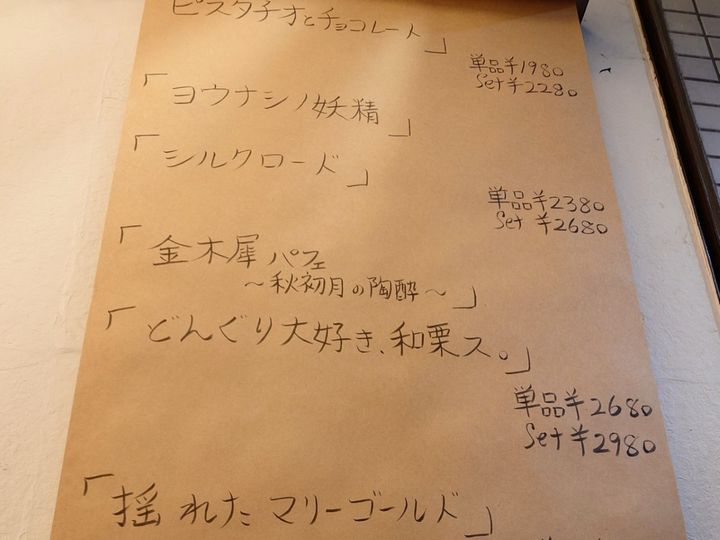 ピスタチオとチョコレート」
単品¥1980
Set ¥2280
「ヨウナシノ妖精」
「シルクロード」
単品¥2380
Set ¥2680
「金木犀パフェ
～秋初月の陶酔～」
「どんぐり大好き、和栗ス。」
単品¥2680
Set ¥2980
「揺れたマリーゴールド」